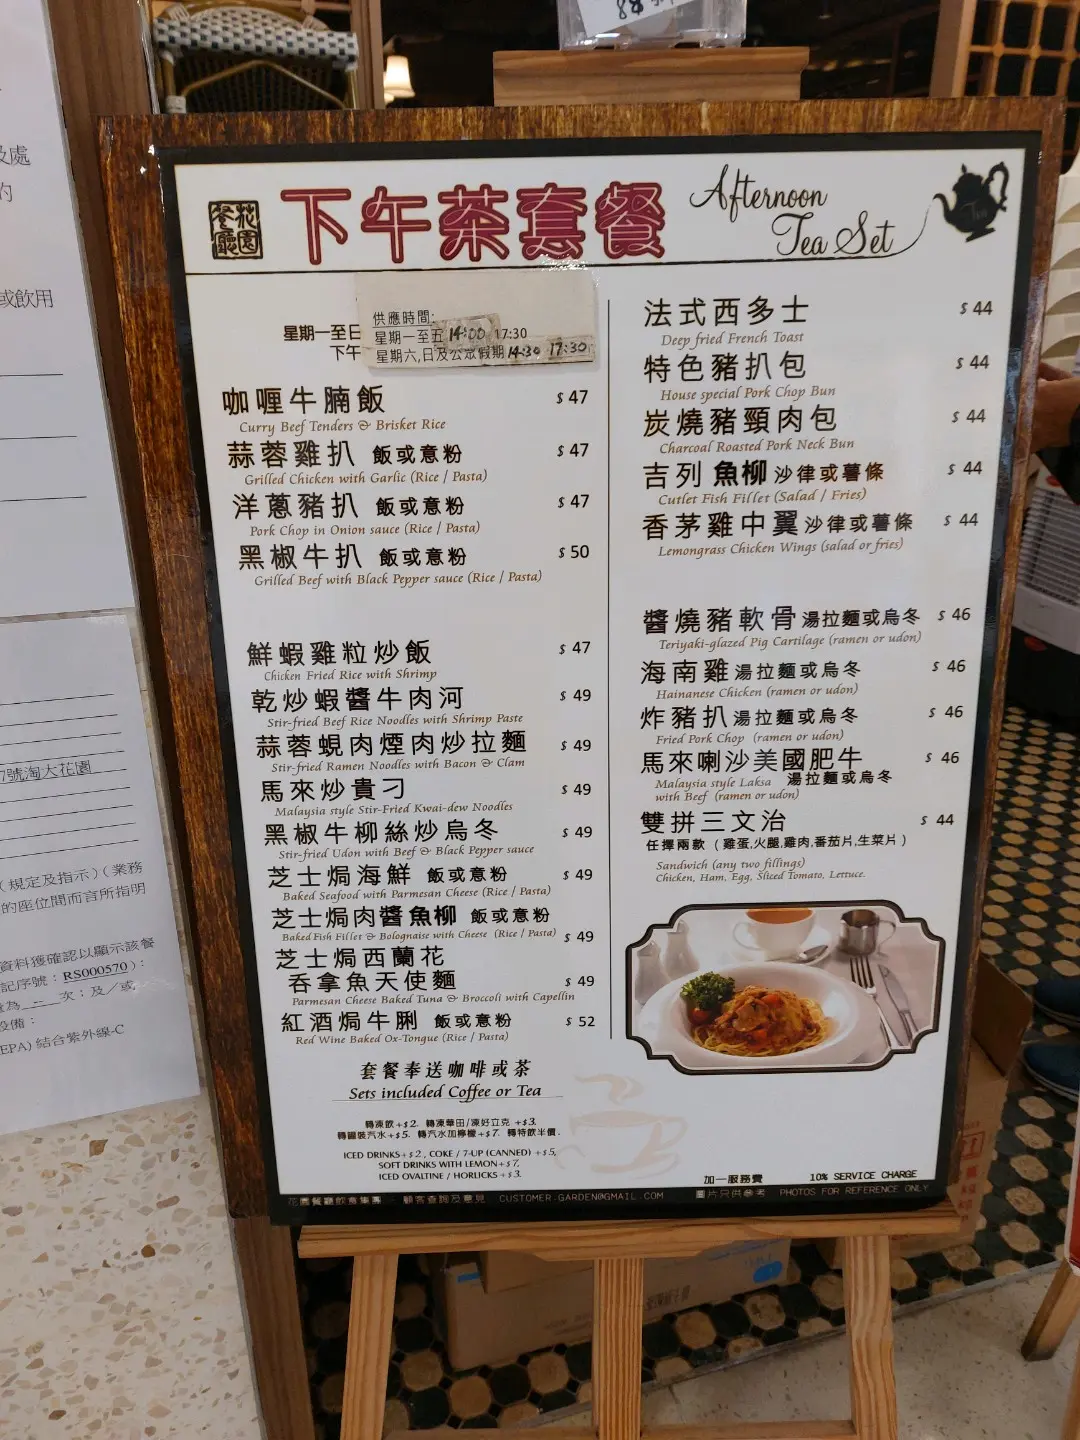 花園餐廳
下午茶套餐
Afternoon
Tea Set
星期一至日
下午
供應時間:
星期一至五 14:00 17:30
星期六,日及公眾假期 14:30 17:30
咖喱牛腩飯 $ 47
Curry Beef Tenders & Brisket Rice
蒜蓉雞扒 飯或意粉 $ 47
Grilled Chicken with Garlic (Rice / Pasta)
洋蔥豬扒 飯或意粉 $ 47
Pork Chop in Onion sauce (Rice / Pasta)
黑椒牛扒 飯或意粉 $ 50
Grilled Beef with Black Pepper sauce (Rice / Pasta)
鮮蝦雞粒炒飯 $ 47
Chicken Fried Rice with Shrimp
乾炒蝦醬牛肉河 $ 49
Stir-fried Beef Rice Noodles with Shrimp Paste
蒜蓉蜆肉煙肉炒拉麵 $ 49
Stir-fried Ramen Noodles with Bacon & Clam
馬來炒貴刁 $ 49
Malaysia style Stir-Fried Kwai-dew Noodles
黑椒牛柳絲炒烏冬 $ 49
Stir-fried Udon with Beef & Black Pepper sauce
芝士焗海鮮 飯或意粉 $ 49
Baked Seafood with Parmesan Cheese (Rice / Pasta)
芝士焗肉醬魚柳 飯或意粉
Baked Fish Fillet & Bolognaise with Cheese (Rice / Pasta) $ 49
芝士焗西蘭花
吞拿魚天使麵 $ 49
Parmesan Cheese Baked Tuna & Broccoli with Capellin
紅酒焗牛脷 飯或意粉 $ 52
Red Wine Baked Ox-Tongue (Rice / Pasta)
套餐奉送咖啡或茶
Sets included Coffee or Tea
轉凍飲+$2. 轉凍華田/凍好立克 +$3.
轉罐裝汽水+$5. 轉汽水加檸檬+$7. 轉特飲半價.
ICED DRINKS+$2, COKE / 7-UP (CANNED) +$5,
SOFT DRINKS WITH LEMON+$7,
ICED OVALTINE / HORLICKS +$3.
法式西多士 $ 44
Deep fried French Toast
特色豬扒包 $ 44
House special Pork Chop Bun
炭燒豬頸肉包 $ 44
Charcoal Roasted Pork Neck Bun
吉列魚柳 沙律或薯條 $ 44
Cutlet Fish Fillet (Salad / Fries)
香茅雞中翼 沙律或薯條 $ 44
Lemongrass Chicken Wings (salad or fries)
醬燒豬軟骨 湯拉麵或烏冬 $ 46
Teriyaki-glazed Pig Cartilage (ramen or udon)
海南雞 湯拉麵或烏冬 $ 46
Hainanese Chicken (ramen or udon)
炸豬扒 湯拉麵或烏冬 $ 46
Fried Pork Chop (ramen or udon)
馬來喇沙美國肥牛 $ 46
Malaysia style Laksa 湯拉麵或烏冬
with Beef (ramen or udon)
雙拼三文治 $ 44
任擇兩款 (雞蛋,火腿,雞肉,番茄片,生菜片)
Sandwich (any two fillings)
Chicken, Ham, Egg, Sliced Tomato, Lettuce.
加一服務費 10% SERVICE CHARGE
花園餐廳飲食集團 顧客查詢及意見 CUSTOMER.GARDEN@GMAIL.COM 圖片只供參考 PHOTOS FOR REFERENCE ONLY
及處
的
或飲用
7號淘大花園
(規定及指示)(業務
的座位間而言所指明
資料獲確認以顯示該餐
記序號:RS000570):
次;及/或
設備:
EPA) 結合紫外線-C